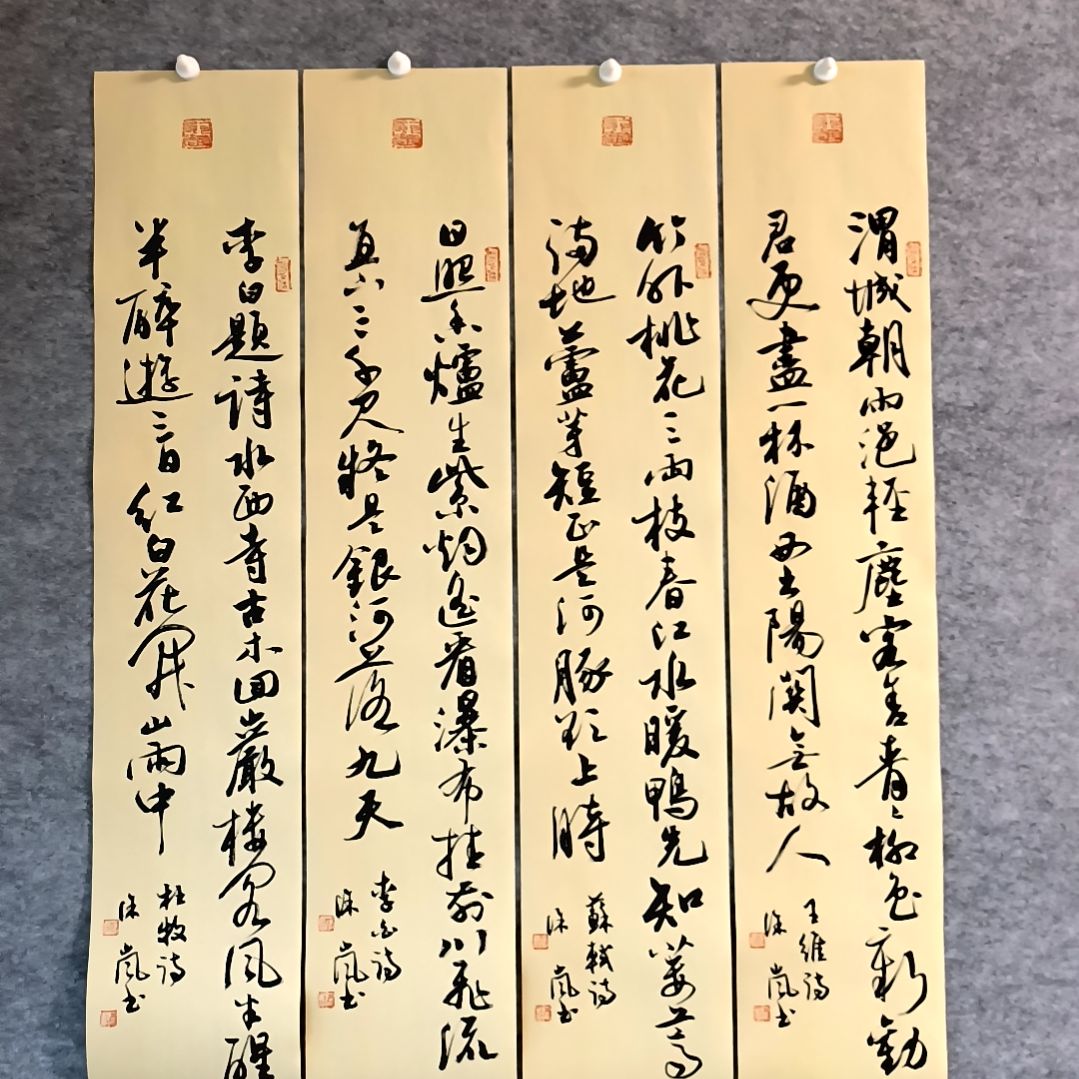 渭城朝雨浥輕塵客舍青々柳色新勸
君更盡一杯酒西出陽關無故人
王維詩
嵐书
竹外桃花三兩枝春江水暖鴨先知蔞蒿
滿地蘆芽短正是河豚欲上時
蘇軾詩
嵐书
日照香爐生紫烟遙看瀑布挂前川飛流
直下三千尺疑是銀河落九天
李白詩
嵐书
李白題詩水西寺古木回巖樓閣風半醒
半醉遊三日紅白花開山雨中
杜牧詩
嵐书